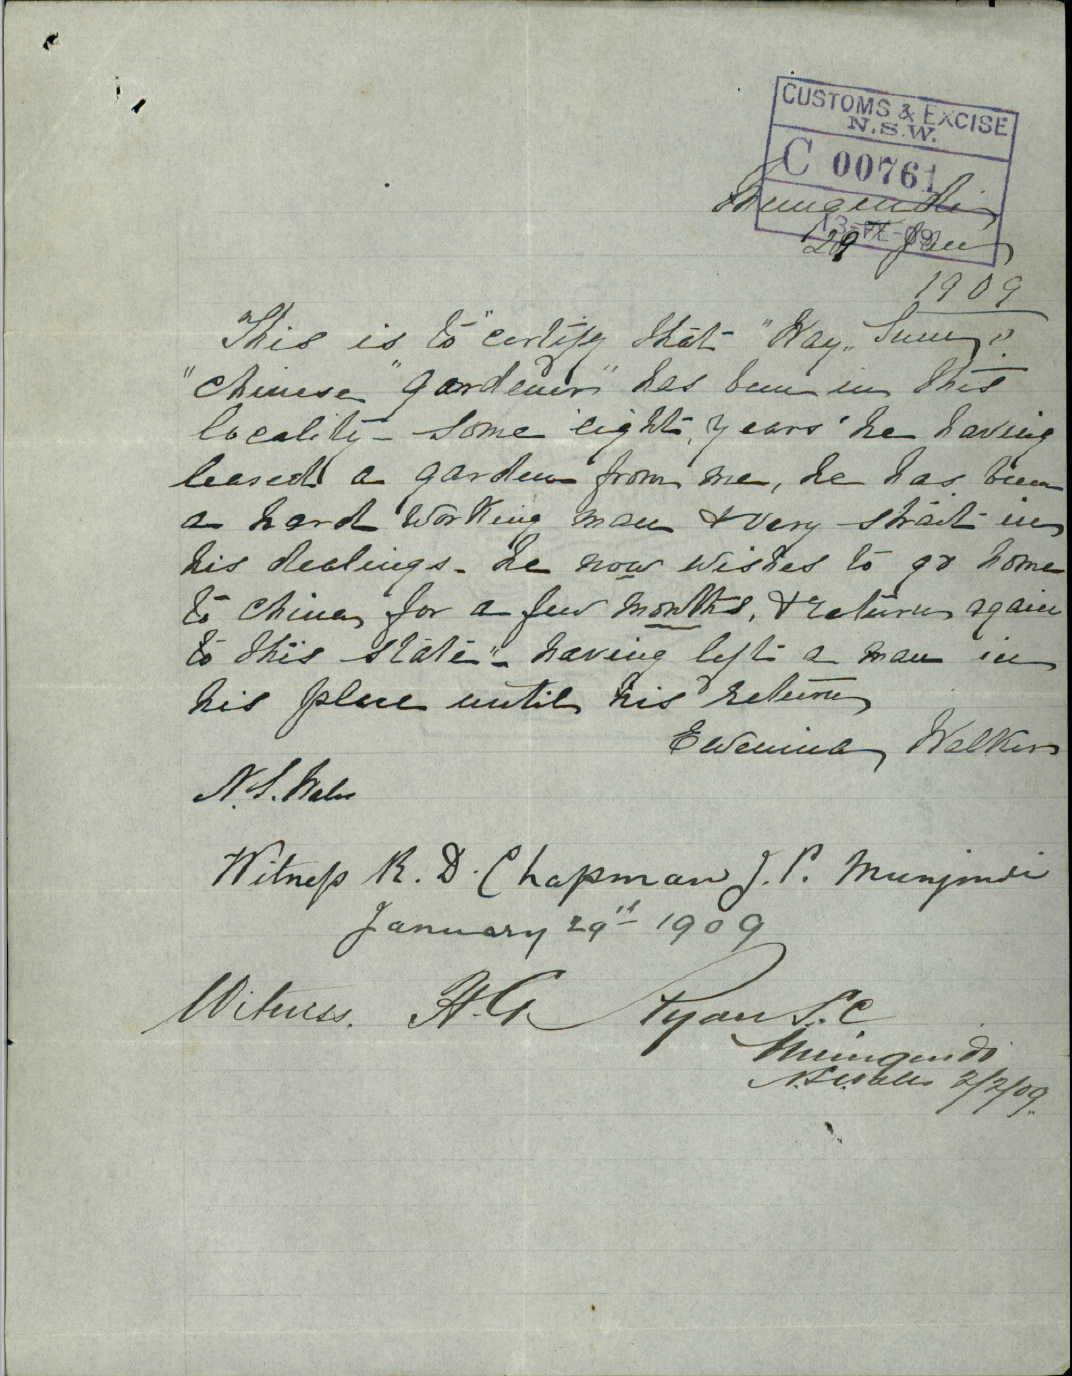 CUSTOMS & EXCISE
N.S.W.
C 00761
Mungindi
29 Jan
1909
This is to certify that "Way Sum"
"Chinese "gardener" has been in this
locality - some eight years he having
leased a garden from me, he has been
a hard working man & very strait in
his dealings - he now wishes to go home
to China for a few months, & return again
to this state" - having left a man in
his place until his return
Ewenina Walker
N. S. Wales
Witness R. D. Chapman J. P. Mungindi
January 29th 1909
Witness. H. G. Ryan S. C
Mungindi
N. S. Wales 2/2/09.